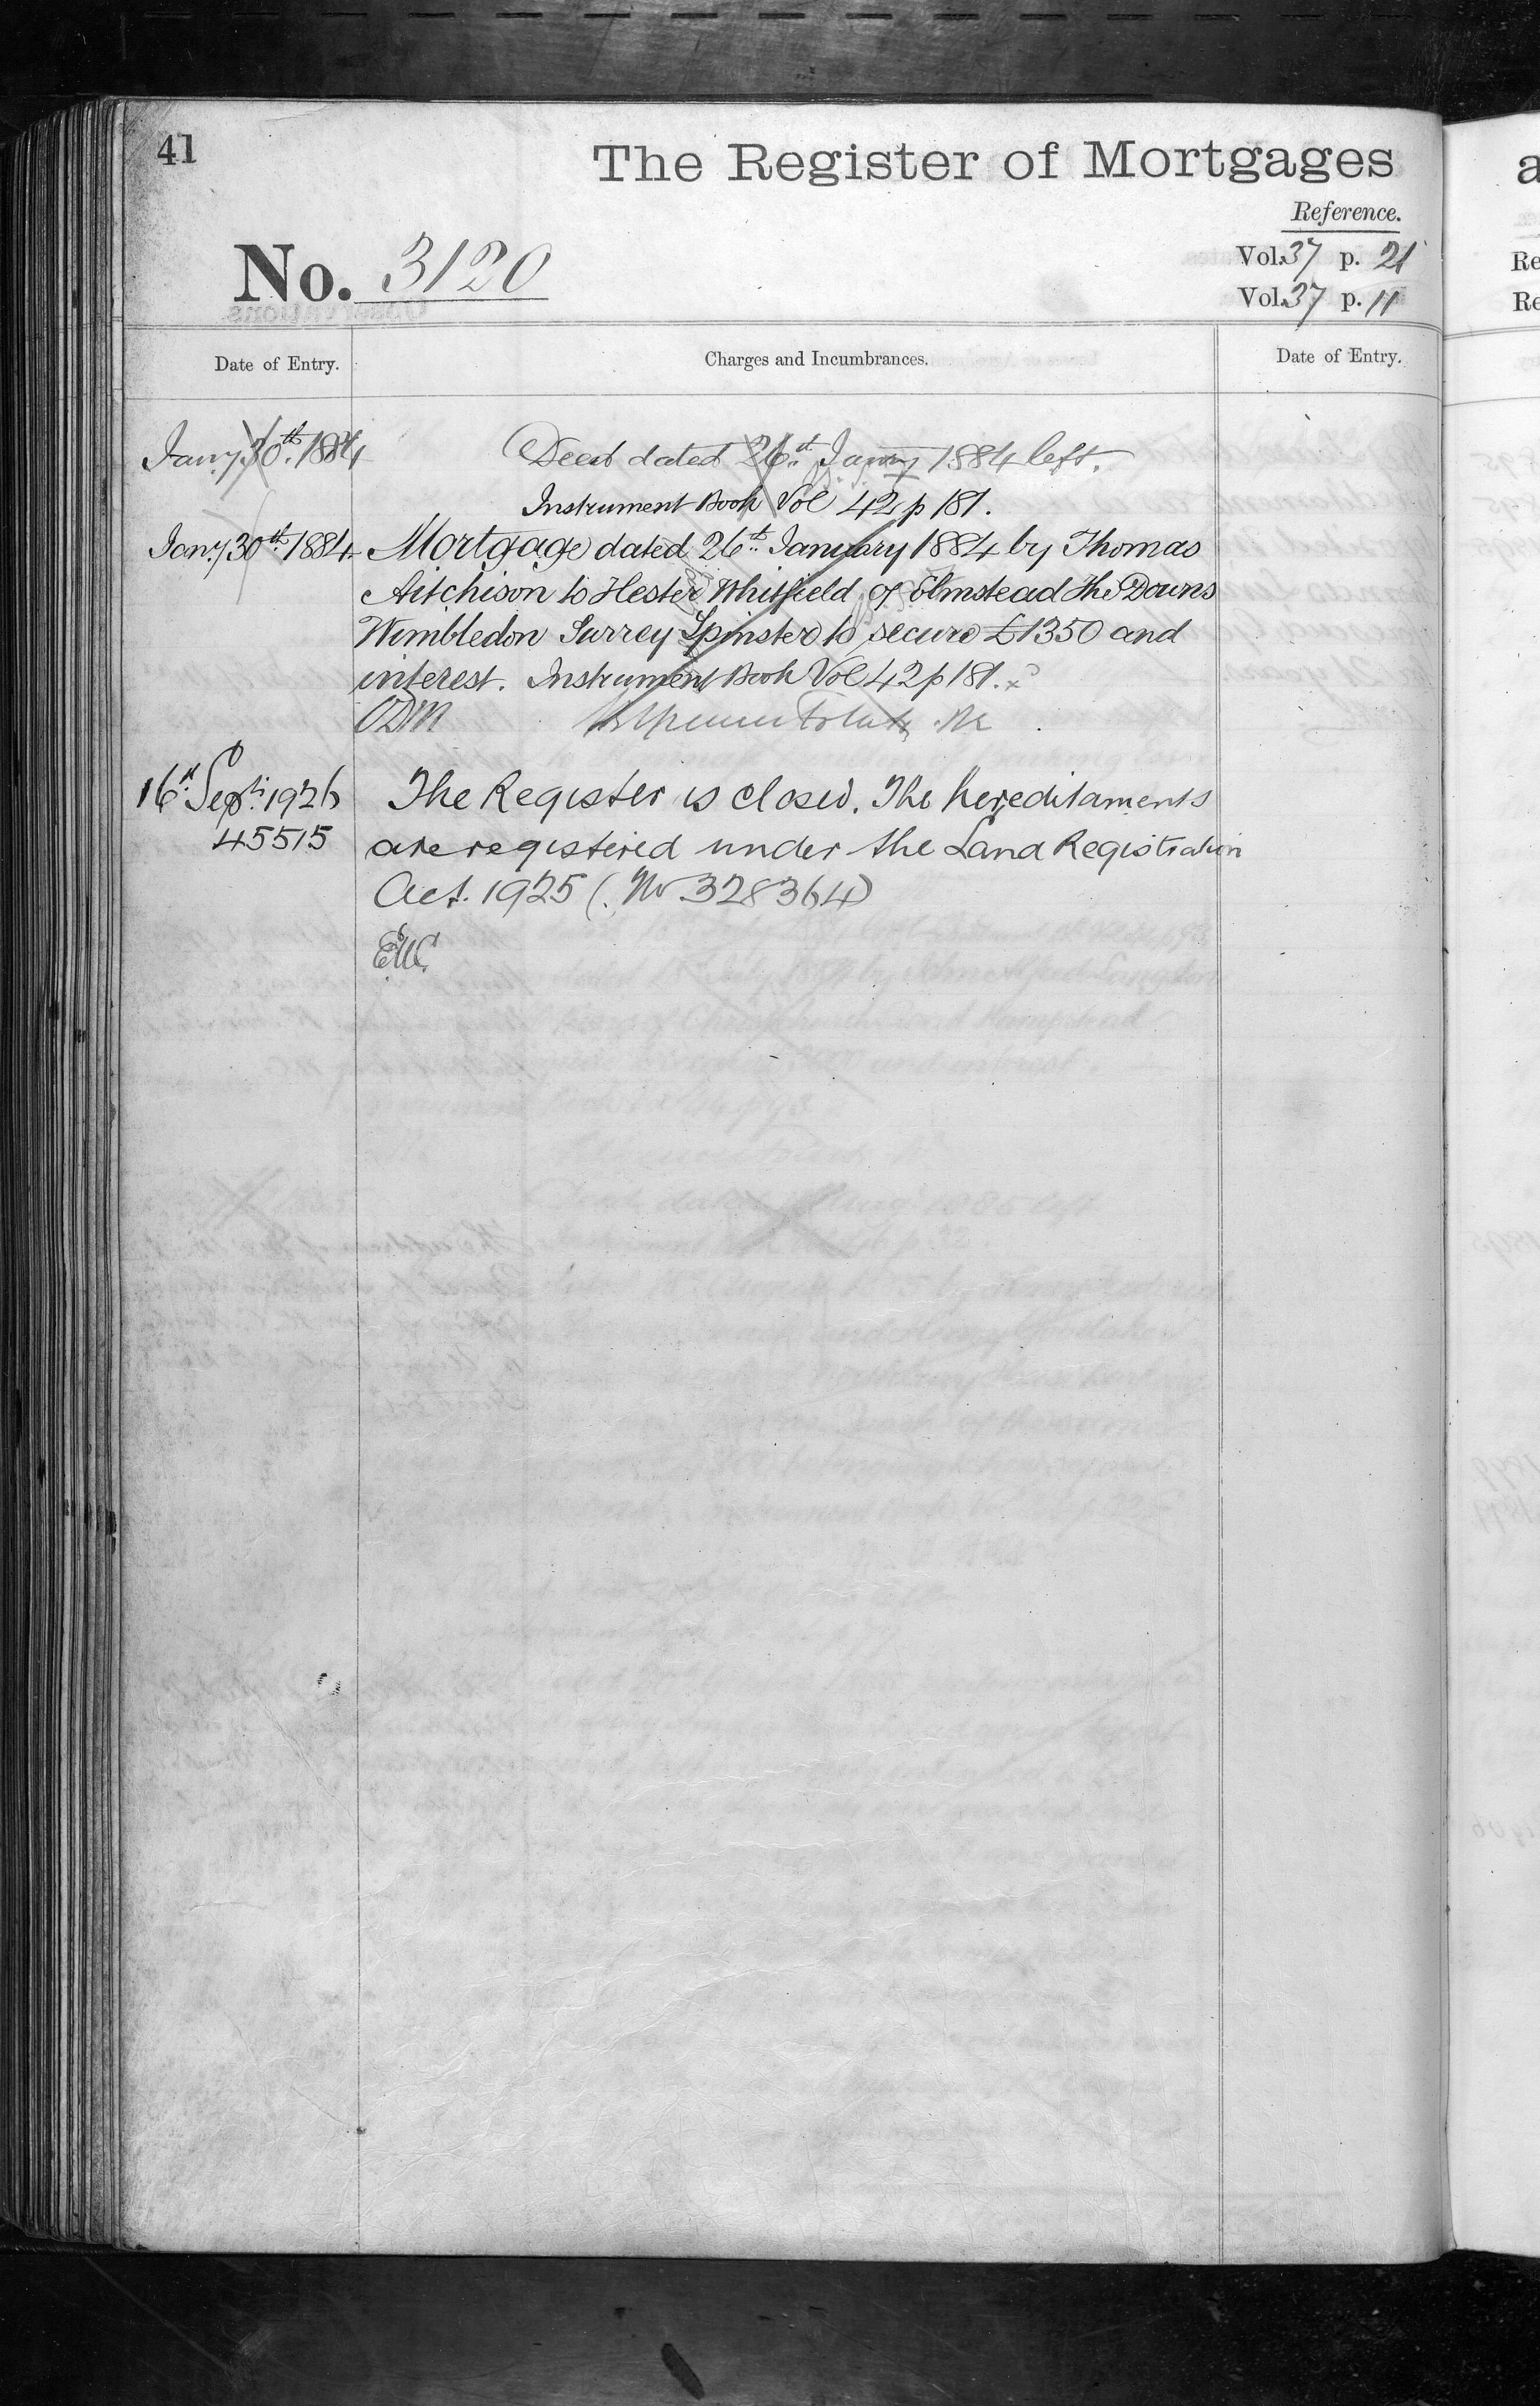 41
The Register of Mortgages
Reference.
No. 3120
Vol. 37 p. 21
Vol. 37 p. 11
Date of Entry.
Charges and Incumbrances.
Date of Entry.
Jany 30th. 1884
Deed dated 26th Jany 1884 left.
Instrument Book Vol 42 p 181.
Jany 30th. 1884
Mortgage dated 26th January 1884 by Thomas
Aitchison to Hester Whitfield of Elmstead The Downs
Wimbledon Surrey Spinster to secure £1350 and
interest. Instrument Book Vol 42 p 181.
16th Sept. 1926
The Register is closed. The hereditaments
45515
are registered under the Land Registration
Act. 1925 (No 328364)
a
Re
Re